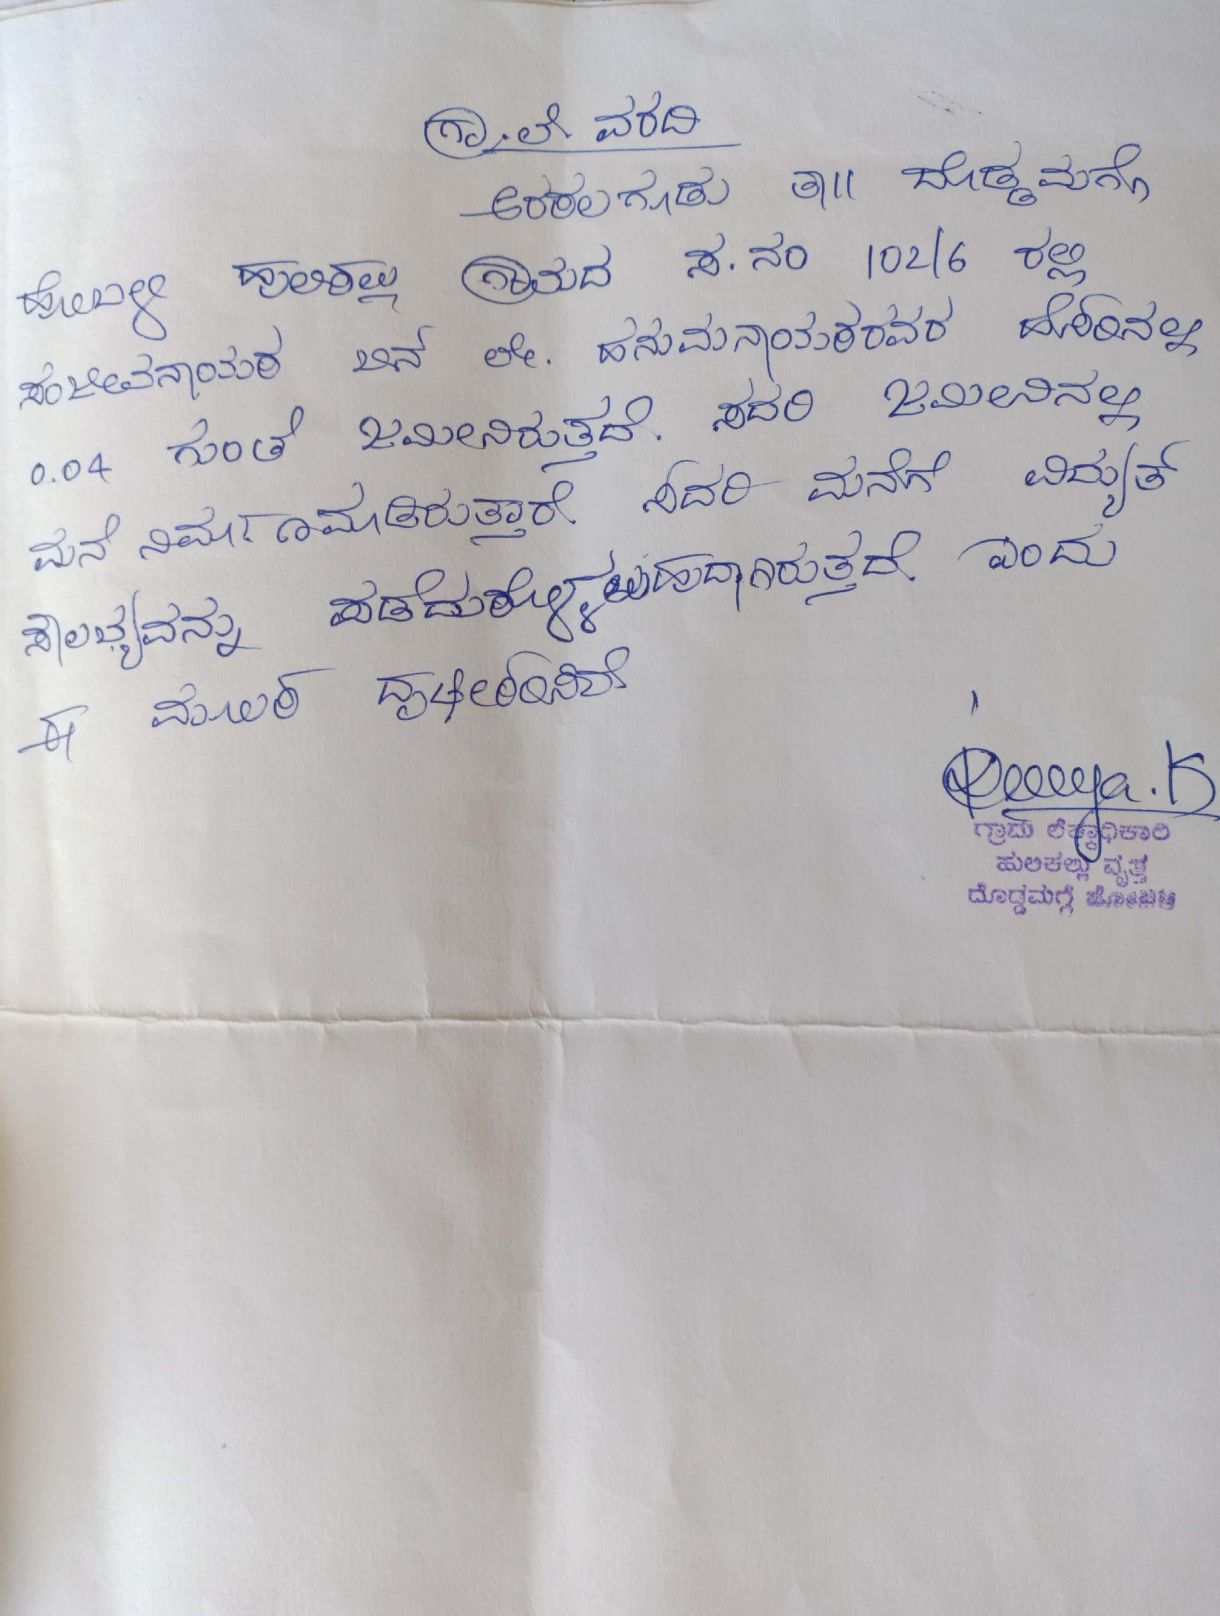 ಗ್ರಾ.ಲೆ. ವರದಿ
ಅರಕಲಗೂಡು ತಾ|| ದೊಡ್ಡಮಗ್ಗೆ
ಹೋಬಳಿ ಹುಲಿಕಲ್ಲು ಗ್ರಾಮದ ಸ.ನಂ 102/6 ರಲ್ಲಿ
ಸಂಜೀವನಾಯಕ ಬಿನ್ ಲೇ. ಹನುಮನಾಯಕರವರ ಹೆಸರಿನಲ್ಲಿ
0.04 ಗುಂಟೆ ಜಮೀನಿರುತ್ತದೆ. ಸದರಿ ಜಮೀನಿನಲ್ಲಿ
ಮನೆ ನಿರ್ಮಾಣಮಾಡಿರುತ್ತಾರೆ. ಸದರಿ ಮನೆಗೆ ವಿದ್ಯುತ್
ಸೌಲಭ್ಯವನ್ನು ಪಡೆದುಕೊಳ್ಳಬಹುದಾಗಿರುತ್ತದೆ. ಎಂದು
ಈ ಮೂಲಕ ದೃಢೀಕರಿಸಿದೆ
K
ಗ್ರಾಮ ಲೆಕ್ಕಾಧಿಕಾರಿ
ಹುಲಿಕಲ್ಲು ವೃತ್ತ
ದೊಡ್ಡಮಗ್ಗೆ ಹೋಬಳಿ